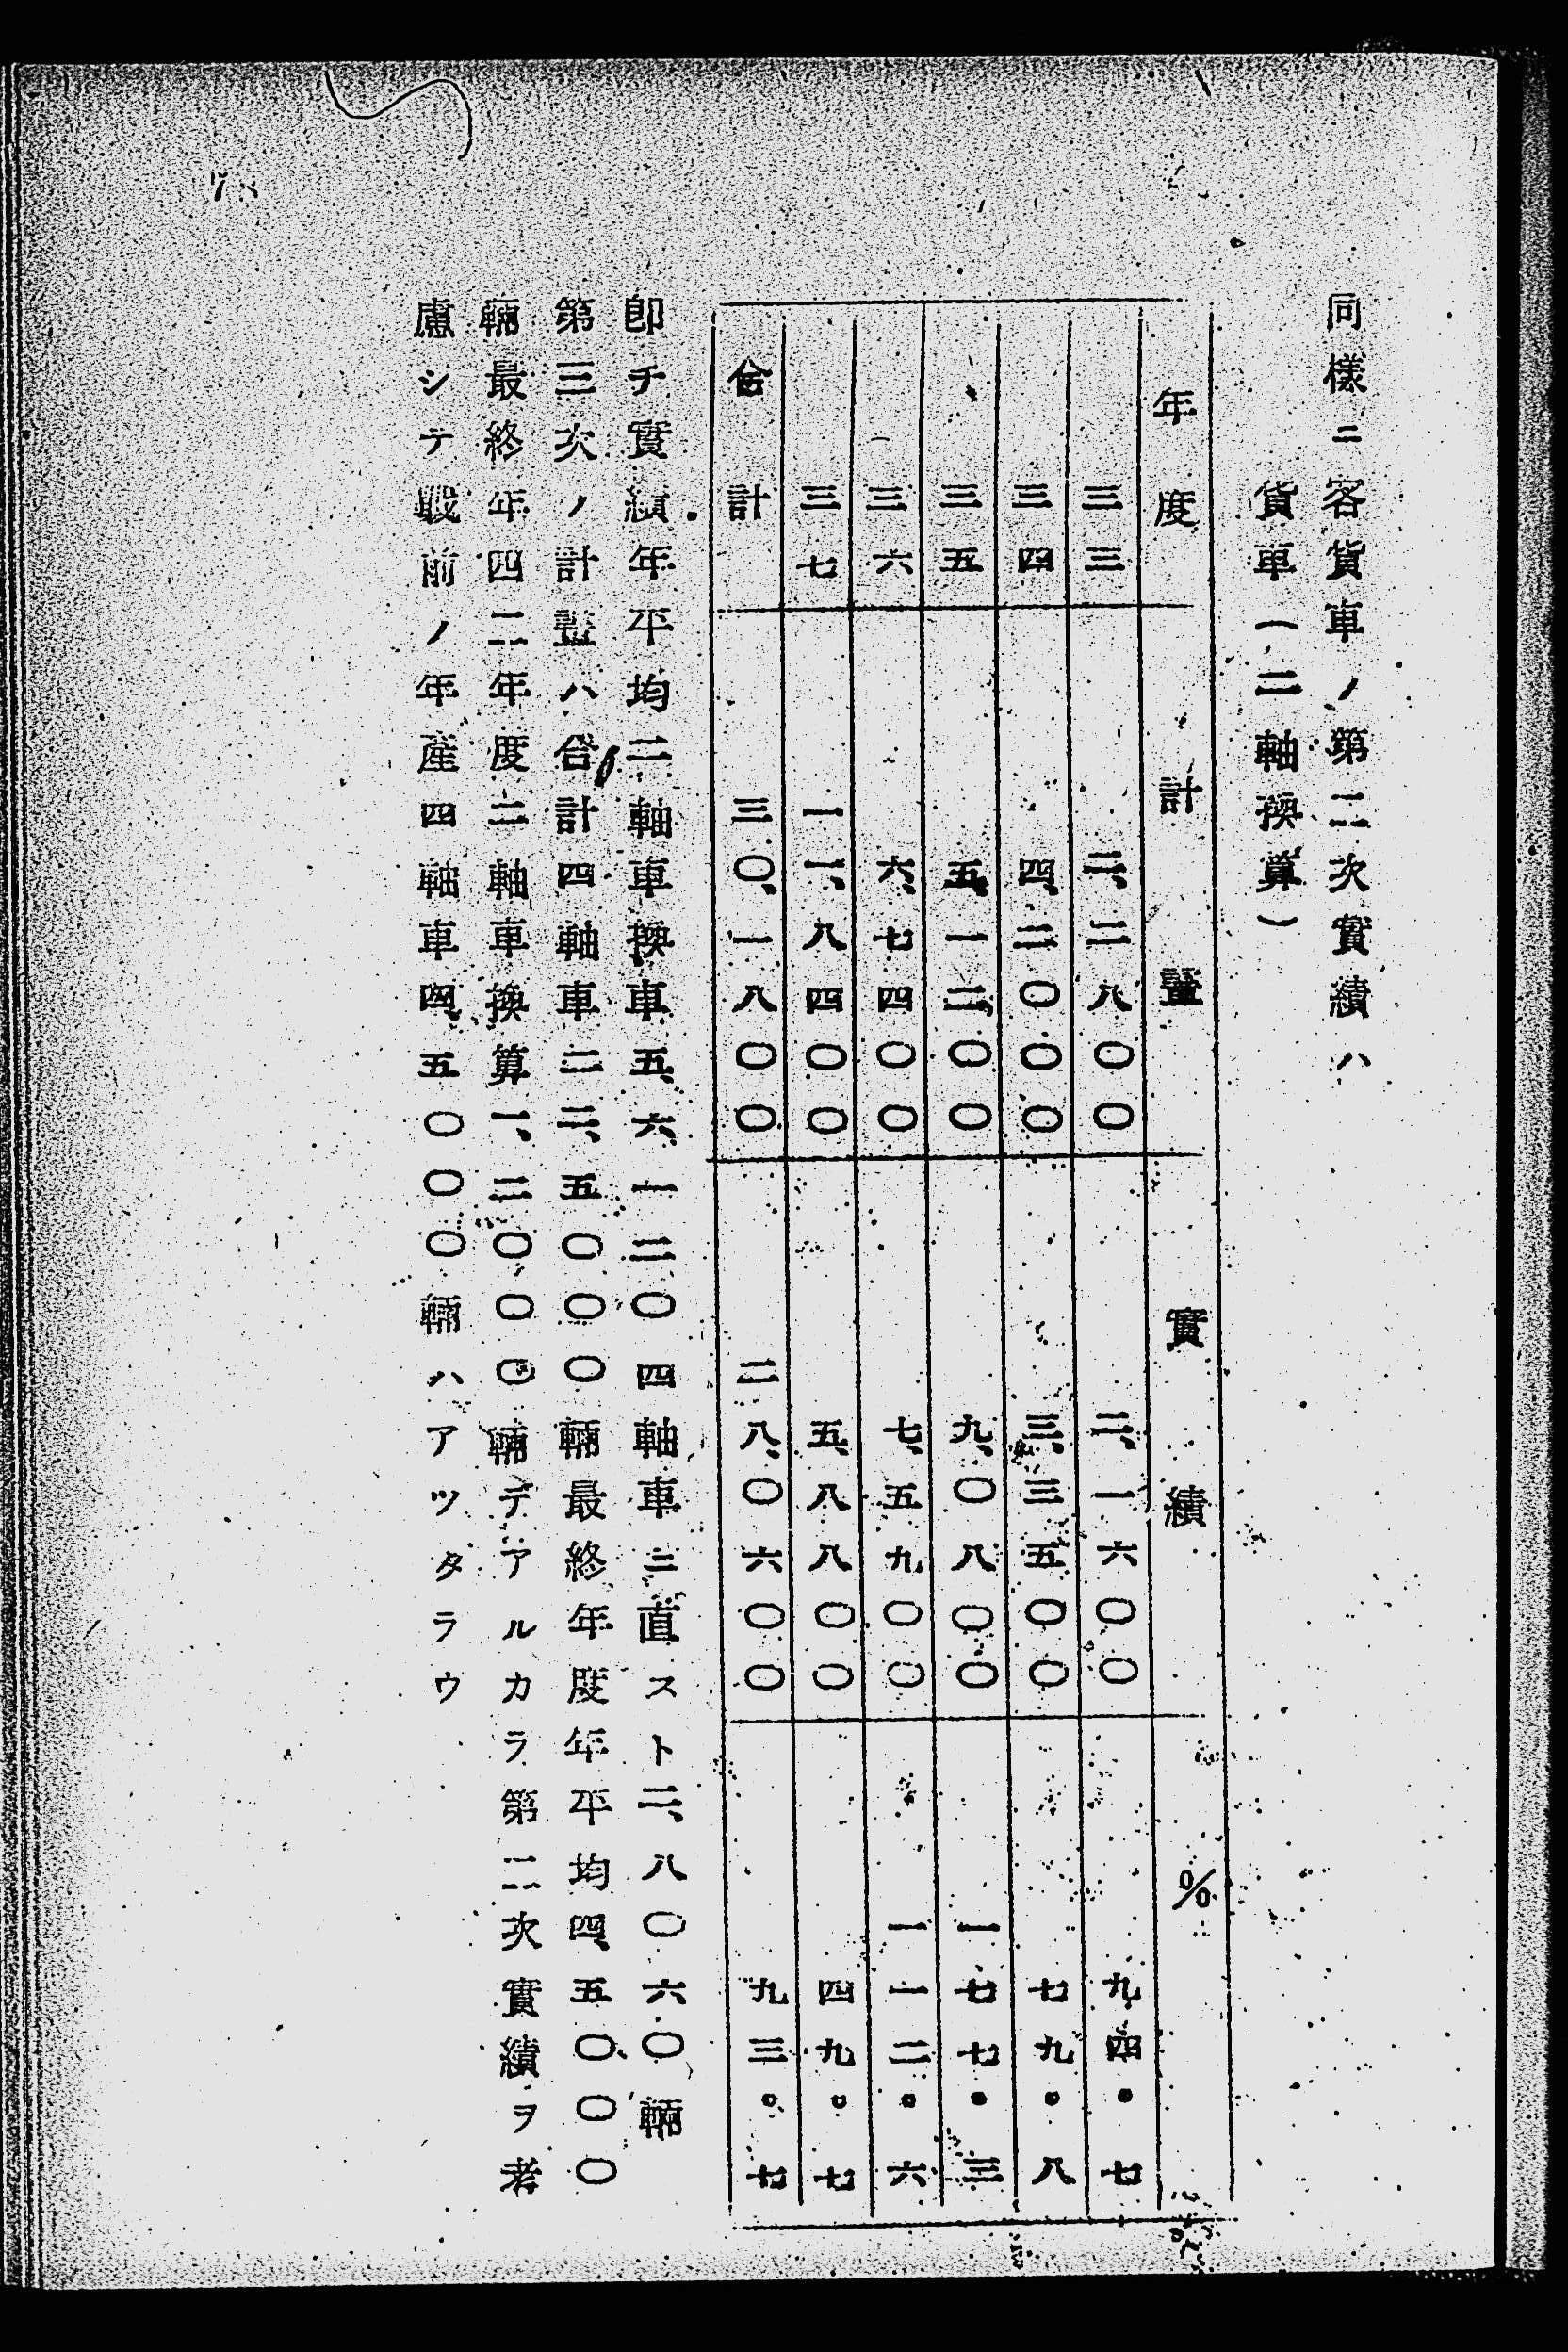 同樣ニ客貨車ノ第二次實績ハ
貨車(二軸換算)
年度 計畫 實績 %
三三 二、二八〇〇 二、一六〇〇 九四・七
三四 四、二〇〇〇 三、三五〇〇 七九・八
三五 五、一二〇〇 九、〇八〇〇 一七七・三
三六 六、七四〇〇 七、五九〇〇 一一二・六
三七 一一、八四〇〇 五、八八〇〇 四九・七
合計 三〇、一八〇〇 二八、〇六〇〇 九三・七
卽チ實績年平均二軸車換車五、六、一二〇四軸車ニ直スト二、八〇六〇輛
第三次ノ計畫ハ合計四軸車二二、五〇〇〇輛最終年度年平均四、五〇〇〇
輛最終年四二年度二軸車換算一、二〇〇〇輛デアルカラ第二次實績ヲ考
慮シテ戰前ノ年產四軸車四、五〇〇〇輛ハアツタラウ